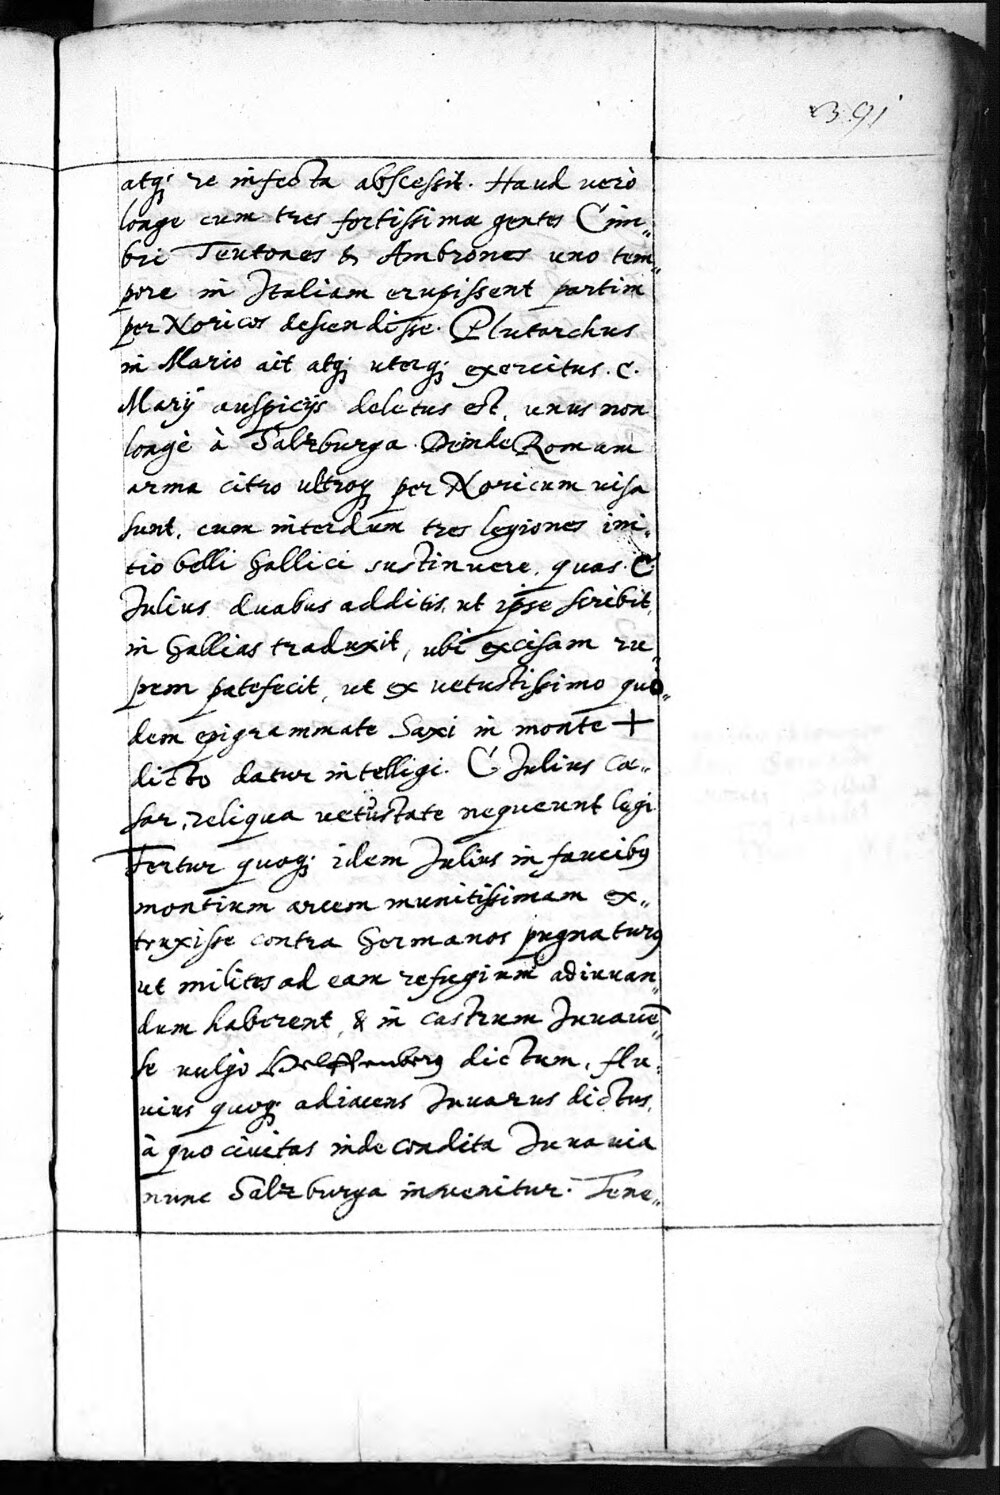 391
atq; re infecta abscessit. Haud verò
longe cum tres fortissimæ gentes Cim„
bri Teutones & Ambrones uno tem„
pore in Italiam erupissent partim
per Noricos descendisse. Plutarchus
in Mario ait atq; uterq; exercitus. C.
Marÿ auspicÿs deletus est, unus non
longè à Salzburga. Deinde Romam
arma citro ultroq; per Noricum uisa
sunt, cum interdum tres legiones ini„
tio belli Gallici sustinuere, quas C
Iulius duabus additis, ut ipse scribit,
in Gallias traduxit, ubi excisam ru„
pem patefecit, ut ex uetustissimo quo„
dem epigrammate Saxi in monte +
dicto datur intelligi. C Iulius Cæ„
sar, reliqua uetustate nequeunt legi
Fertur quoq; idem Iulius in faucibus
montium arcem munitissimam ex„
truxisse contra Germanos pugnaturus
ut milites ad eam refugium adiuuan„
dum haberent, & in castrum Iuuauẽ„
se uulgo dictum, flu„
uius quoq; adiacens Iuuarus dictus,
à quo ciuitas inde condita Iuuauia
nunc Salzburga inuenitur. Tene„